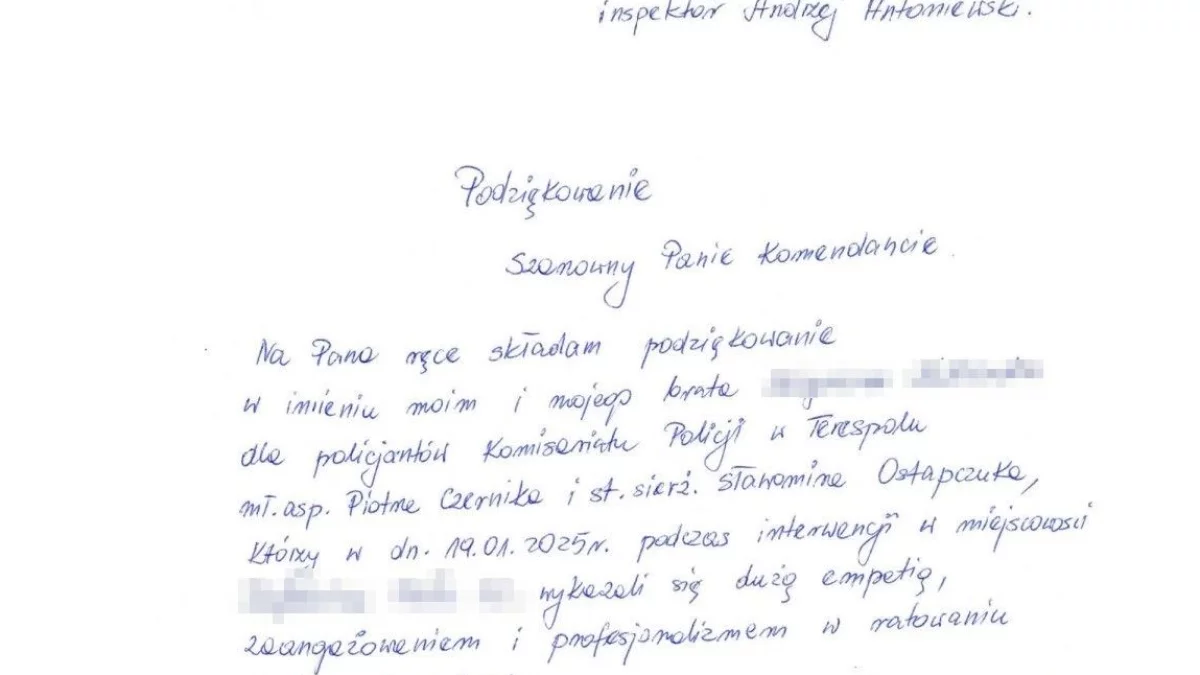 inspektor Andrzej Antoniewski.
Podziękowanie
Szanowny Panie Komendancie.
Na Pana ręce składam podziękowanie
w imieniu moim i mojego brata
dla policjantów Komisariatu Policji w Terespolu
mł. asp. Piotra Czernika i st. sierż. Sławomira Ostapczuka,
którzy w dn. 19.01.2025r. podczas interwencji w miejscowości
wykazali się dużą empatią,
zaangażowaniem i profesjonalizmem w ratowaniu